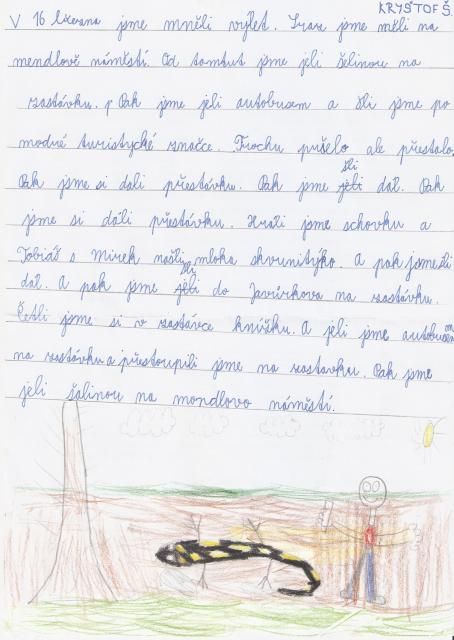 KRYŠTOF Š.
V 16 června jsme mněli výlet. Sraz jsme měli na
mendlově náměstí. Od tamtut jsme jeli šelinou na
zastávku. Pak jsme jeli autobusem a šli jsme po
modré turistycké značce. Trochu pršelo ale přestalo.
Pak jsme si dali přestávku. Pak jsme šli dál. Pak
jsme si dali přestávku. Hráli jsme schovku a
Tobiáš s Mirek našli mloka skvrnitýko. A pak jsme šli
dál. A pak jsme šli do Javůrkova na zastávku.
Četli jsme si v zastávce knížku. A jeli jsme autobusem
na zastávku a přestoupili jsme na zastavku. Pak jsme
jeli šalinou na mondlovo náměstí.